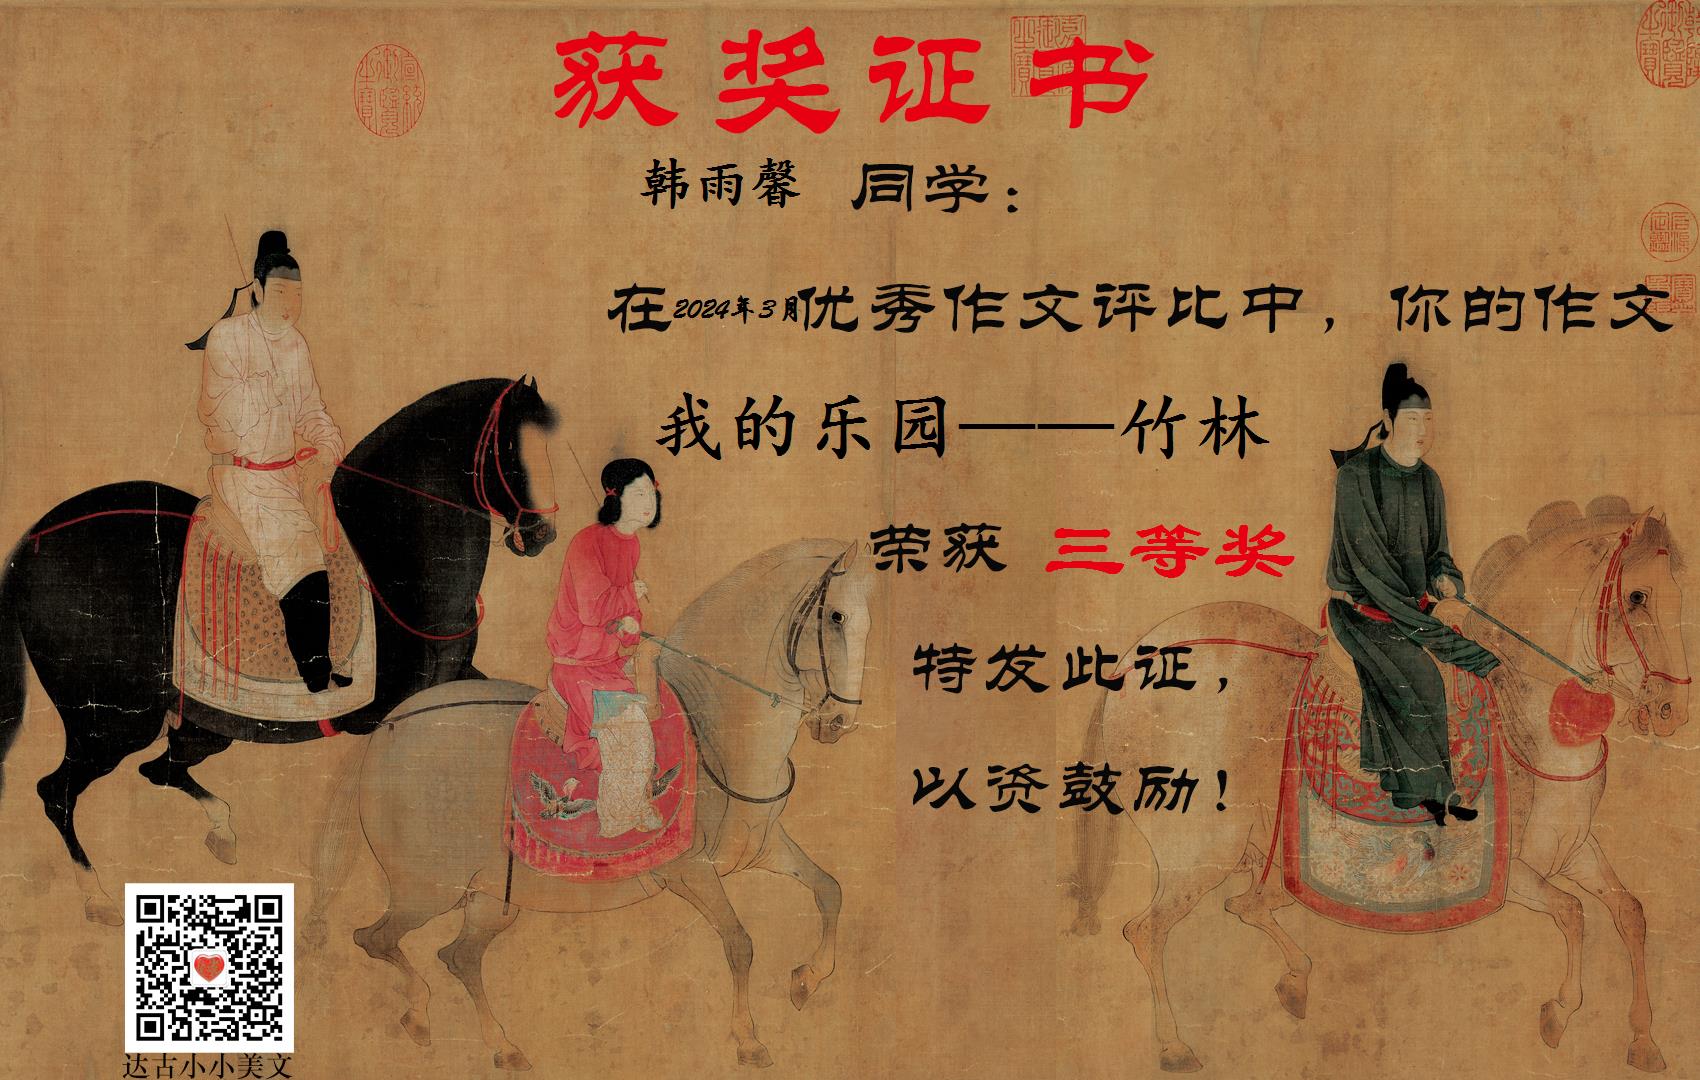 获奖证书
韩雨馨 同学：
在2024年3月优秀作文评比中，你的作文
我的乐园——竹林
荣获 三等奖
特发此证，
以资鼓励！
达古小小美文